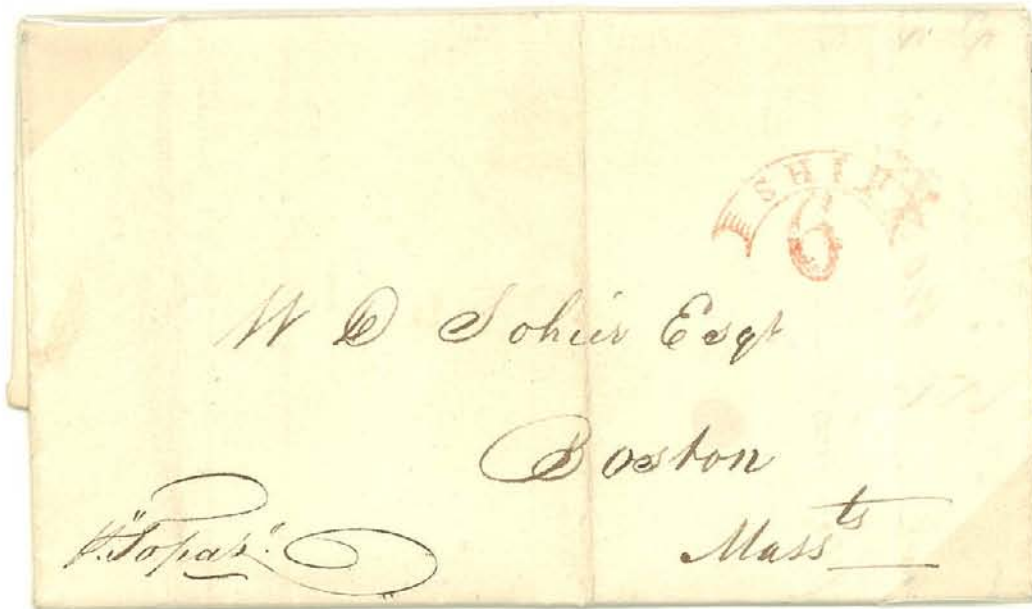 SHIP
6
W D Sohier Esqr
Boston
Massts
pr. "Topaz".